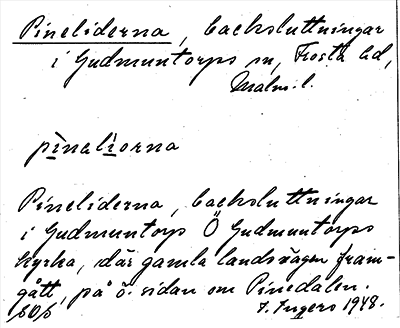 Pineliderna, backsluttningar
i Gudmuntorps sn, Frosta hd,
Malm. l.
pinaliorna
Pineliderna, backsluttningar
i Gudmuntorp Ö Gudmuntorps
kyrka, där gamla landsvägen fram-
gått, på ö. sidan om Pinedalen.
I. Ingers 1948.